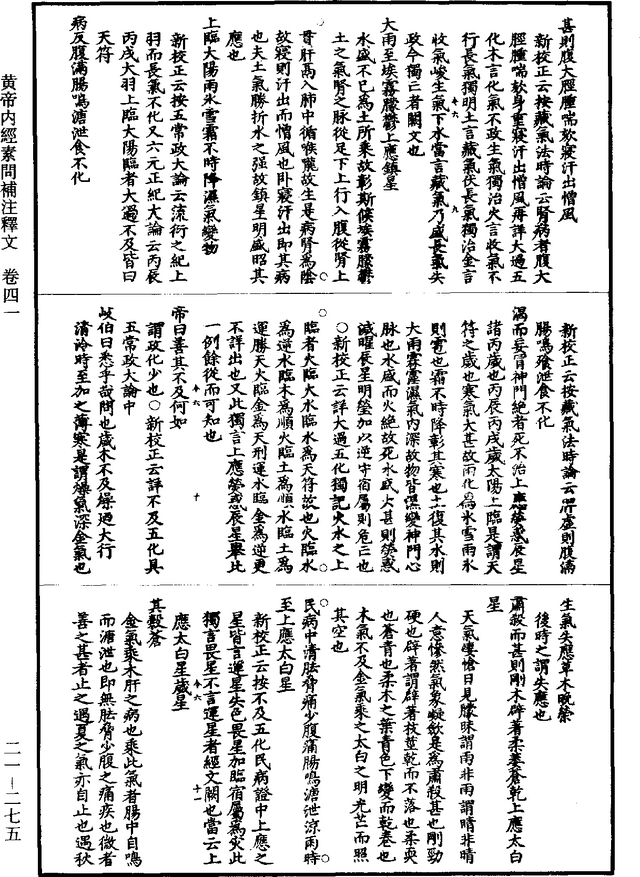 甚則腹大脛腫喘欬寢汗出憎風
新校正云按藏氣法時論云腎病者腹大
脛腫喘欬身重寢汗出憎風再詳大過五
化木言化氣不政生氣獨治火言收氣不
行長氣獨明土言藏氣伏長氣獨治金言
收氣峻生氣下水當言藏氣乃盛長氣失
政今獨亡者闕文也
大雨至埃霧朦鬱上應鎮星
水盛不已為土所乘故彰斯候埃霧朦鬱
土之氣腎之脉從足下上行入腹從腎上
貫肝鬲入肺中循喉嚨故生是病腎為陰
故寢則汗出而憎風也卧寢汗出即其病
也夫土氣勝折水之强故鎮星明盛昭其
應也
上臨大陽雨氷雪霜不時降濕氣變物
新校正云按五常政大論云流衍之紀上
羽而長氣不化又六元正紀大論云丙辰
丙戌大羽上臨大陽臨者大過不及皆曰
天符
病反腹滿腸鳴溏泄食不化
新校正云按藏氣法時論云脾虛則腹滿
腸鳴飱泄食不化
渴而妄冒神門絕者死不治上應熒惑辰星
諸丙歲也丙辰丙戌歲太陽上臨是謂天
符之歲也寒氣大甚故雨化為氷雪雨氷
則雹也霜不時降彰其寒也土復其水則
大雨霖霪濕氣内深故物皆濕變神門心
脉也水盛而火絕故死水盛大甚則熒惑
減曜辰星明瑩加以逆守宿屬則危亡也
○新校正云詳大過五化獨記火水之上
臨者火臨火水臨水為天符故也火臨水
為逆水臨木為順火臨土為順水臨土為
運勝天火臨金為天刑運水臨金為逆更
不詳出也又此獨言上應熒惑辰星舉此
一例餘從而可知也
帝曰善其不及何如
謂政化少也○新校正云詳不及五化具
五常政大論中
岐伯曰悉乎哉問也歲木不及燥迺大行
清冷時至加之薄寒是謂燥氣燥金氣也
生氣失應草木晚榮
後時之謂失應也
肅殺而甚則剛木辟著柔萎蒼乾上應太白
星
天氣悽愴日見朦昧謂雨非雨謂晴非晴
人意慘然氣象凝歛是為肅殺甚也剛勁
硬也辟著謂辟著枝莖乾而不落也柔耎
也蒼青也柔木之葉青色不變而乾卷也
木氣不及金氣乘之太白之明光芒而照
其空也
民病中清胠脅痛少腹痛腸鳴溏泄涼雨時
至上應太白星
新校正云按不及五化民病證中上應之
星皆言運星失色畏星加臨宿屬為灾此
獨言畏星不言運星者經文闕也當云上
應太白星歲星
其穀蒼
金氣乘木肝之病也乘此氣者腸中自鳴
而溏泄也即無胠脅少腹之痛疾也微者
善之甚者止之遇夏之氣亦自止也遇秋
黄帝内經素問補注釋文 卷四一
二一—二七五